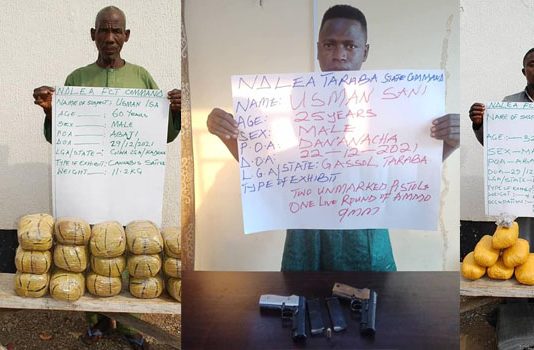 NDLEA FCT COMMAND
NAME OF SUSPECT: USMAN ISA
AGE: 60 YEARS
SEX: MALE
P.O.A: ABAJI
D.O.A: 29/12/2021
LGA/STATE
TYPE OF EXHIBIT: CANNABIS SATIVA
WEIGHT: 11.2KG
NDLEA TARABA STATE COMMAND
NAME: USMAN SANI
AGE: 25 YEARS
SEX: MALE
P.O.A: DAN'ANACHA
D.O.A: 22-12-2021
L.G.A/STATE: GASSOL, TARABA
TYPE OF EXHIBIT
TWO UNMARKED PISTOLS
ONE LIVE ROUND OF AMMO
9MM
NDLEA FC
NAME OF SUSP
AGE
SEX